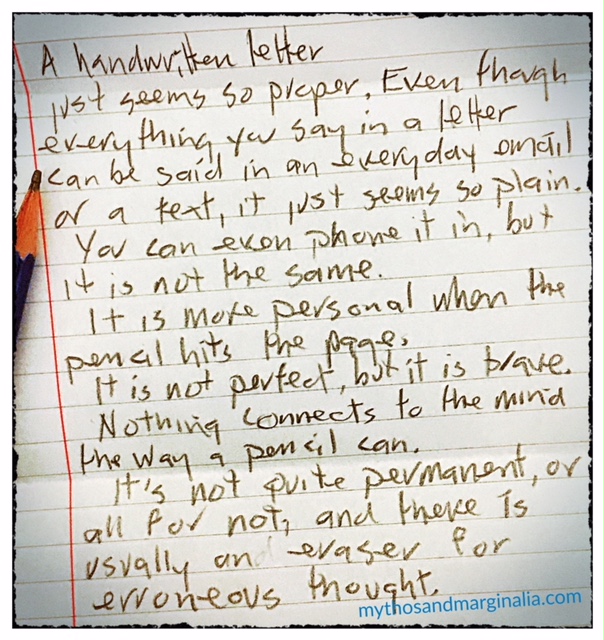 A handwritten letter
just seems so proper. Even though
everything you say in a letter
can be said in an everyday email
or a text, it just seems so plain.
You can even phone it in, but
it is not the same.
It is more personal when the
pencil hits the page.
It is not perfect, but it is brave.
Nothing connects to the mind
the way a pencil can.
It's not quite permanent, or
all for not, and there is
usually an eraser for
erroneous thought.
mythosandmarginalia.com